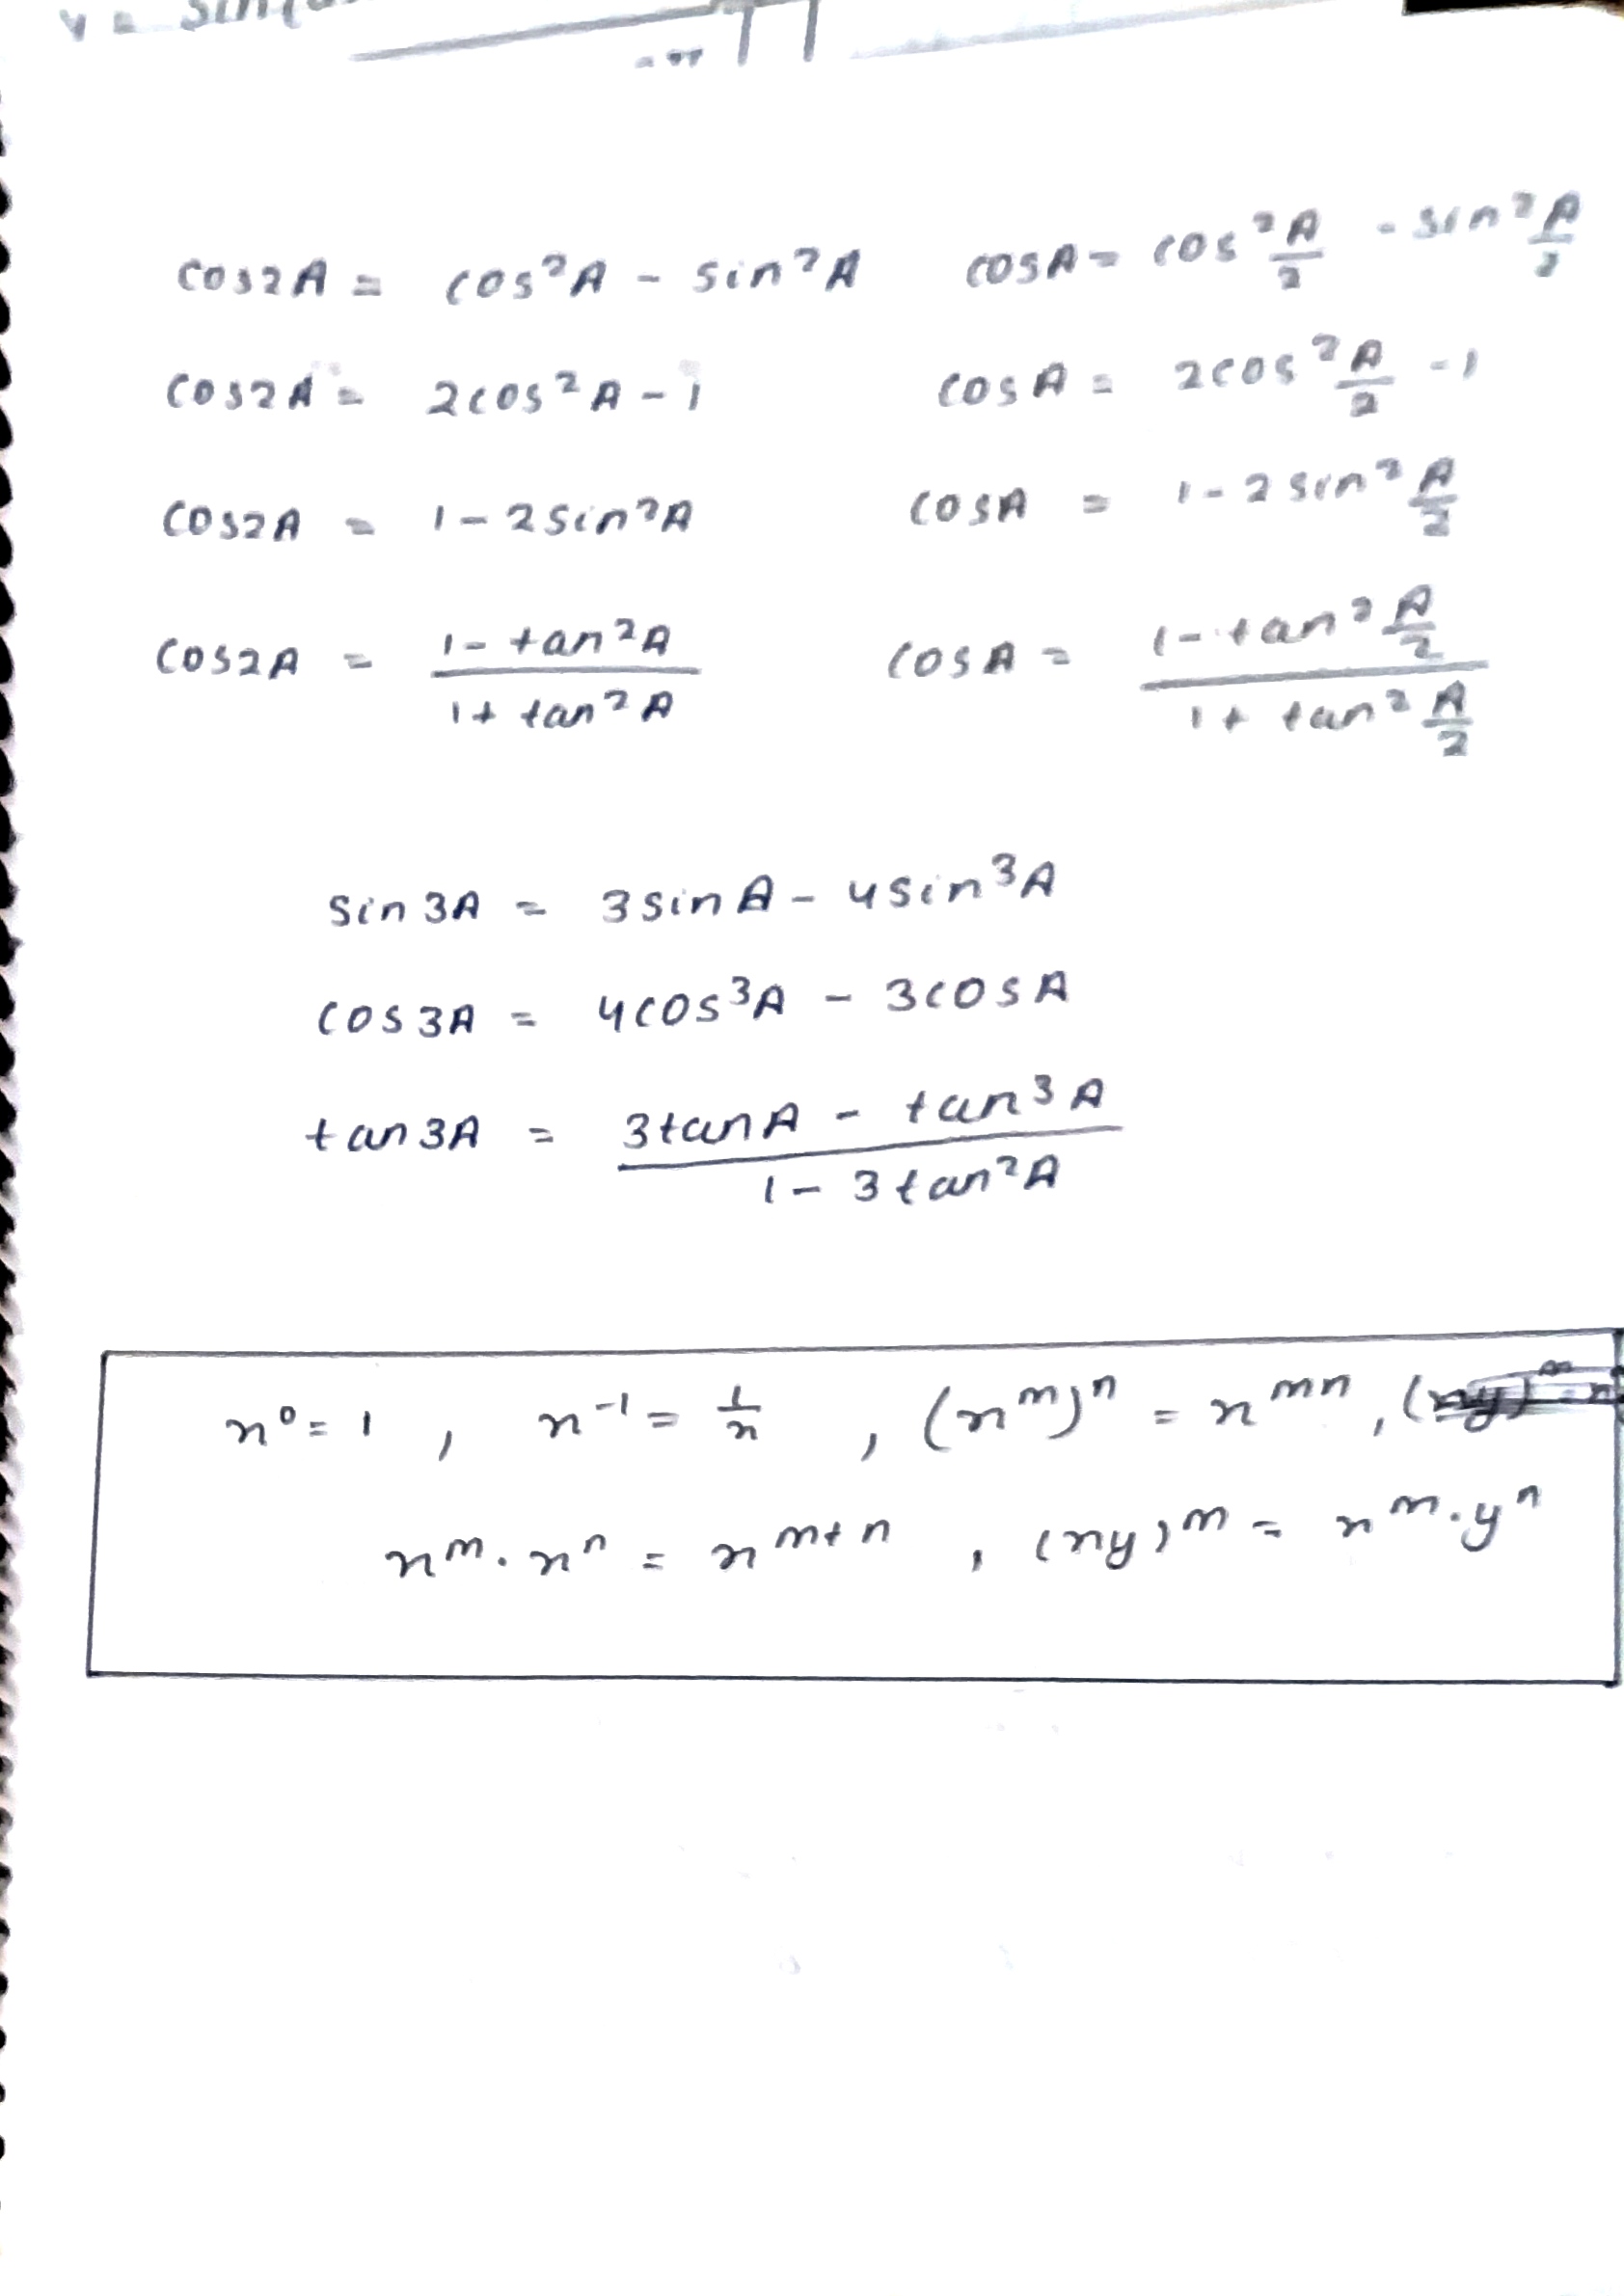 cos2A = cos²A - sin²A    cosA = cos² A/2 - sin² A/2
cos2A = 2cos²A - 1    cosA = 2cos² A/2 - 1
cos2A = 1 - 2sin²A    cosA = 1 - 2sin² A/2
cos2A = (1 - tan²A)/(1 + tan²A)    cosA = (1 - tan² A/2)/(1 + tan² A/2)
sin3A = 3sinA - 4sin³A
cos3A = 4cos³A - 3cosA
tan3A = (3tanA - tan³A)/(1 - 3tan²A)
x⁰ = 1 , x⁻¹ = 1/x , (xᵐ)ⁿ = xᵐⁿ ,
xᵐ · xⁿ = xᵐ⁺ⁿ , (xy)ᵐ = xᵐ · yⁿ